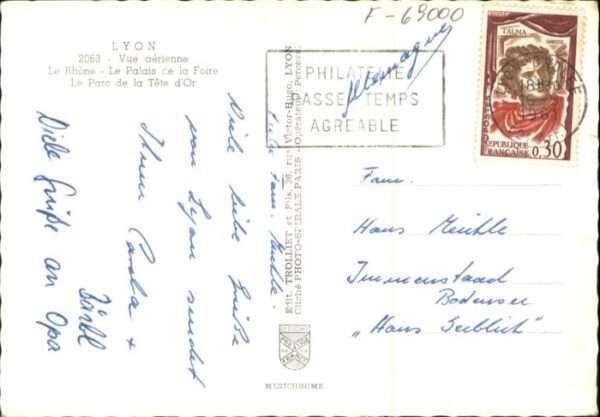 F-69000
LYON
2063 - Vue aérienne
Le Rhône - Le Palais de la Foire
Le Parc de la Tête d'Or
PHILATELIE
PASSE-TEMPS
AGREABLE
Allemagne
TALMA
POSTES
REPUBLIQUE
FRANÇAISE
0,30
Liebe Fam.
Viele liebe Grüße
von Lyon sendet
Ihnen
Bärbl
Viele Grüße an Opa
Edit. TROLLIET et Fils, 36, rue Victor-Hugo, LYON
Cliché PHOTO-SPIRALE PARIS - Opérateur: Perceval
MEXICHROME
Fam.
Hans
Immenstaad
Bodensee
„Haus Seeblick"